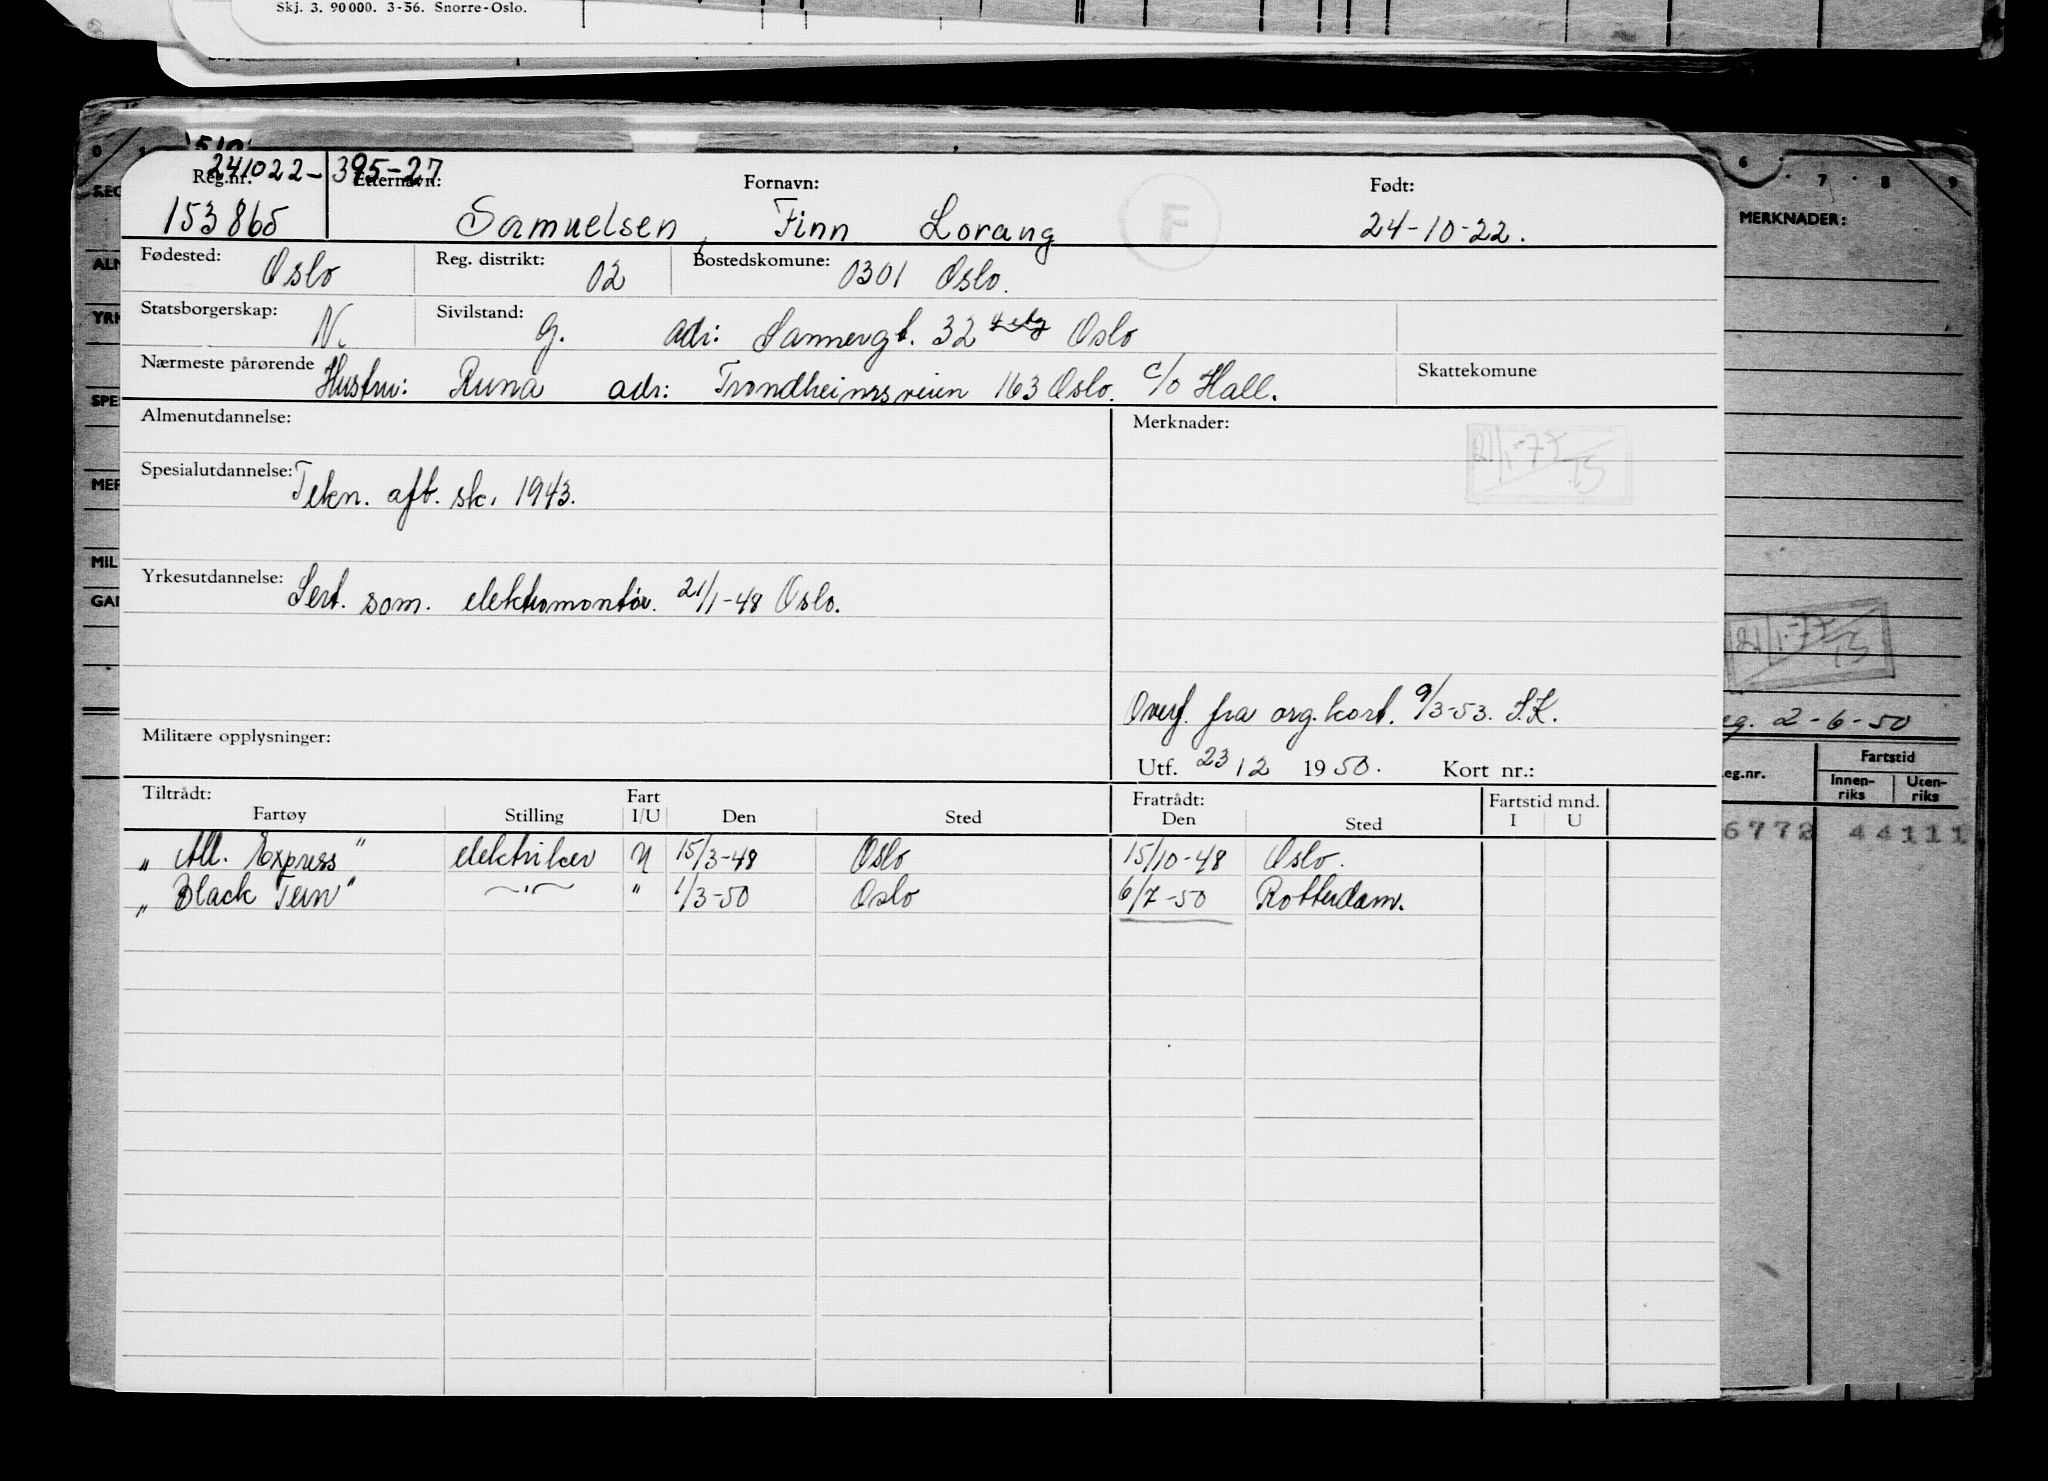 Skj. 3. 90000. 3-56. Snorre-Oslo.
241022-395-27
Reg.nr. Etternavn: Fornavn: Født:
153865 Samuelsen, Finn Lorang 24-10-22.
F
Fødested: Oslo Reg. distrikt: 02 Bostedskomune: 0301 Oslo.
Statsborgerskap: N. Sivilstand: G. adr: Sannergt. 32 Oslo
Nærmeste pårørende Hustru: Runa adr: Trondheimsveien 163 Oslo. c/o Hall. Skattekomune
Almenutdannelse: Merknader:
21/1-77
Spesialutdannelse: Tekn. aft. sk. 1943.
Yrkesutdannelse: Sert. som. elektromontør. 21/1-48 Oslo.
Overf. fra org.kort. 9/3-53. S.K.
Militære opplysninger:
Utf. 23/12 1950. Kort nr.:
Tiltrådt: Fart Fratrådt: Fartstid mnd.
Fartøy Stilling I/U Den Sted Den Sted I U
„ All. Express" elektriker U 15/3-48 Oslo 15/10-48 Oslo.
„ Black Tern" —"— " 1/3-50 Oslo 6/7-50 Rotterdam.
6 7 8 9
MERKNADER:
21/1-77
2-6-50
eg.nr. Fartstid
Innen-riks Uten-riks
6772 44111